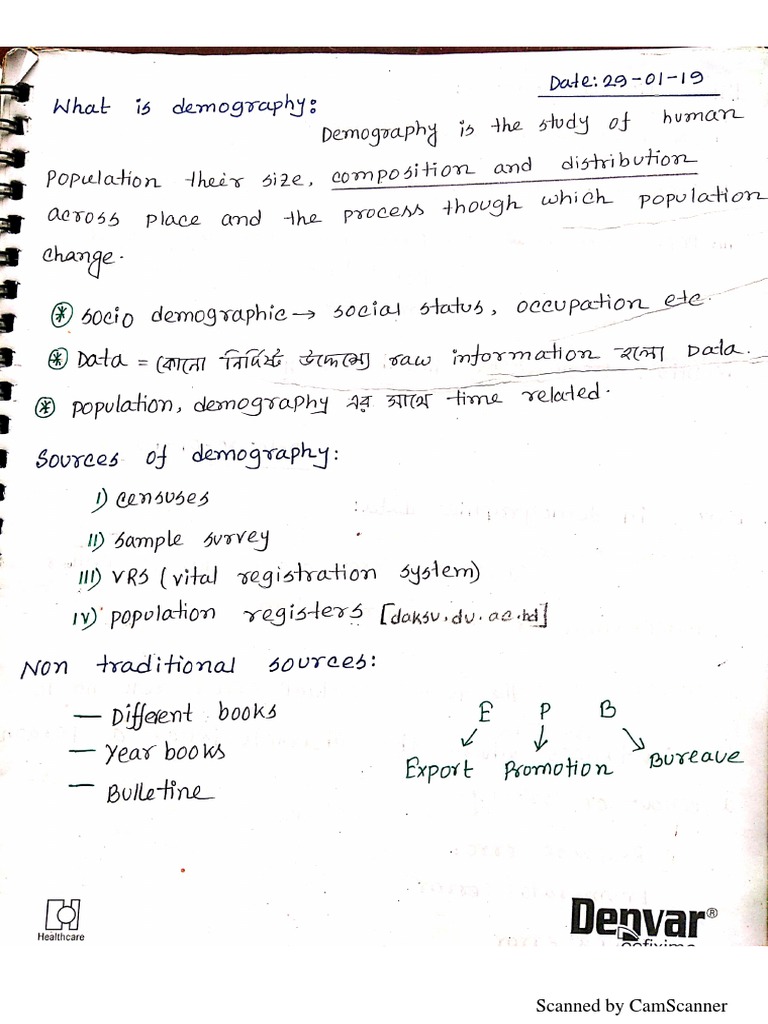 Date: 29-01-19
What is demography:
Demography is the study of human
population their size, composition and distribution
across place and the process though which population
change.
* socio demographic → social status, occupation etc.
* Data = কোনো নির্দিষ্ট উদ্দেশ্যে raw information হলো Data.
* population, demography এর সাথে time related.
Sources of demography:
I) censuses
II) sample survey
III) VRS (vital registration system)
IV) population registers [daksu.du.ac.bd]
Non traditional sources:
— Different books
— Year books
— Bulletine
E P B
Export Promotion Bureaue
Healthcare
Denvar®
cefixime
Scanned by CamScanner